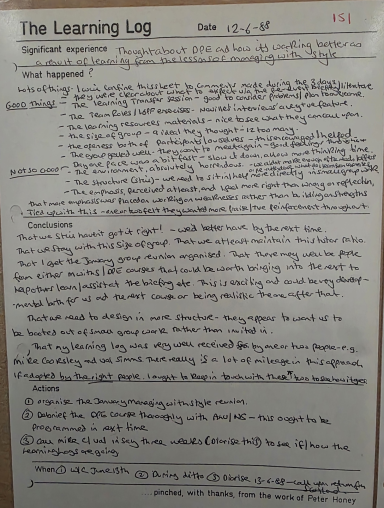 151
The Learning Log Date 12-6-88
Significant experience Thought about DPE and how it's working better as
a result of learning from the lessons of managing with style
What happened?
Lots of things - I will confine this sheet to comments made during the 3 days.
Good Things - They were clear about what to expect via the pre-event briefing/literature
- The Learning Transfer session - good to consider problems
- The Team Roles / Leff exercises - now linked in
- The learning resources materials - nice to see what they can call upon.
- The size of group - 12 ideal they thought - 12 too many.
- The openness both of participants & ourselves -
- The group gelled well - they want to meet again - good feelings
Not so good - On one pace was a bit fast - slow it down, allow more thinking time.
- The environment, absolutely horrendous -
- The structure (1 law) - we need to sit in/help more directly in small group work
- The emphasis, perceived at least, and spent more right than wrong on reflection,
that more emphasis was placed on working on weaknesses rather than building on strengths
. Tied up with this - one or two felt they wanted more praise/true reinforcement throughout
Conclusions
That we still haven't got it right! - we'd better have by the next time.
That we stay with this size of group. That we at least maintain this tutor ratio.
That I get the January group reunion organised. That there may well be people
from either m with s / DPE courses that could be worth bringing into the next to
help other learn/assist at the briefing etc. This is exciting and could be very develop-
-mental both for us and the next course or being realistic the one after that.
That we need to design in more structure - they appear to want us to
be booted out of small group work rather than invited in.
That my learning log was very well received by one or two people - e.g.
Mike Cooksley and Val Simms. There really is a lot of mileage in this approach,
if adopted by the right people. I ought to keep in touch with these two to see how it goes.
Actions
① organise the January managing with style reunion.
② Debrief the DPE course thoroughly with - this ought to be
programmed in next time
③ Call Mike C / Val in say three weeks (diarise this) to see if/how the
learning logs are going
When ① w/c June 13th ② During ditto ③ Diarise 13-6-88 - call upon return from
Scotland
....pinched, with thanks, from the work of Peter Honey